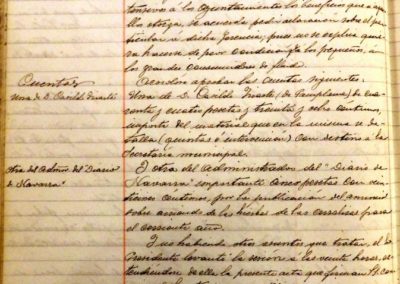 tengan á los Ayuntamientos los beneficios que a aque-
llos otorga, se acuerda pedir aclaración sobre el par-
ticular á dicha Gerencia, pues no se explica que
de peor condición á los pequeños, á
los grandes consumidores de fluido.
Cuentas
Acordóse aprobar las cuentas siguientes:
Una de D. Casildo Iriarte
Una de D. Casildo Iriarte, (de Pamplona) de cua-
renta y cuatro pesetas y treinta y ocho céntimos,
importe del material que en la misma se de-
talla (quintas é intervención) con destino á la
Secretaría municipal.
Otra del Admor. del "Diario
de Navarra"
É otra del Administrador del "Diario de
Navarra" importante cinco pesetas con vein-
cinco céntimos, por la publicación del anuncio
sobre arriendo de las hierbas de las corralizas para
el corriente año.
Y no habiendo otros asuntos que tratar, el Sr.
Presidente levantó la sesión á las veinte horas, ex-
tendiéndose de ella la presente acta que firman S.S. con